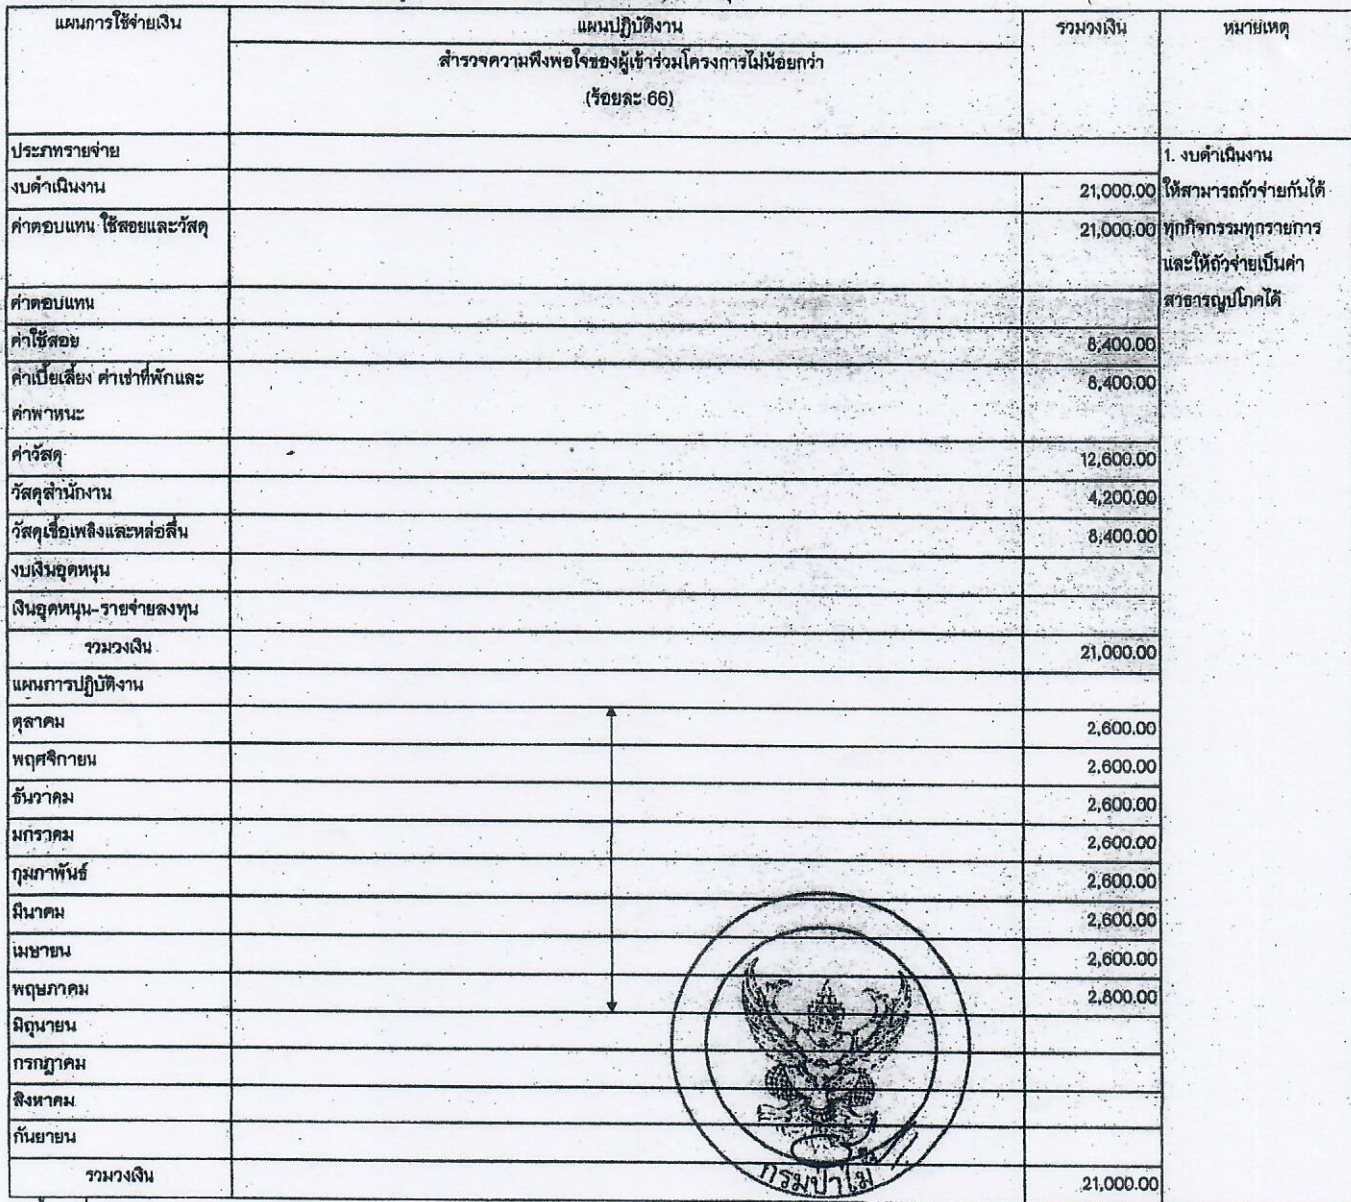 แผนการใช้จ่ายเงิน แผนปฏิบัติงาน รวมวงเงิน หมายเหตุ
สำรวจความพึงพอใจของผู้เข้าร่วมโครงการไม่น้อยกว่า
(ร้อยละ 66)
ประภทรายจ่าย 1. งบดำเนินงาน
งบดำเนินงาน 21,000.00 ให้สามารถถัวจ่ายกันได้
ค่าตอบแทน ใช้สอยและวัสดุ 21,000.00 ทุกกิจกรรมทุกรายการ
และให้ถัวจ่ายเป็นค่า
ค่าตอบแทน สาธารณูปโภคได้
ค่าใช้สอย 8,400.00
ค่าเบี้ยเลี้ยง ค่าเช่าที่พักและ 8,400.00
ค่าพาหนะ
ค่าวัสดุ 12,600.00
วัสดุสำนักงาน 4,200.00
วัสดุเชื้อเพลิงและหล่อลื่น 8,400.00
งบเงินอุดหนุน
เงินอุดหนุน-รายจ่ายลงทุน
รวมวงเงิน 21,000.00
แผนการปฏิบัติงาน
ตุลาคม 2,600.00
พฤศจิกายน 2,600.00
ธันวาคม 2,600.00
มกราคม 2,600.00
กุมภาพันธ์ 2,600.00
มีนาคม 2,600.00
เมษายน 2,600.00
พฤษภาคม 2,800.00
มิถุนายน
กรกฎาคม
สิงหาคม
กันยายน
กรมป่าไม้
รวมวงเงิน 21,000.00